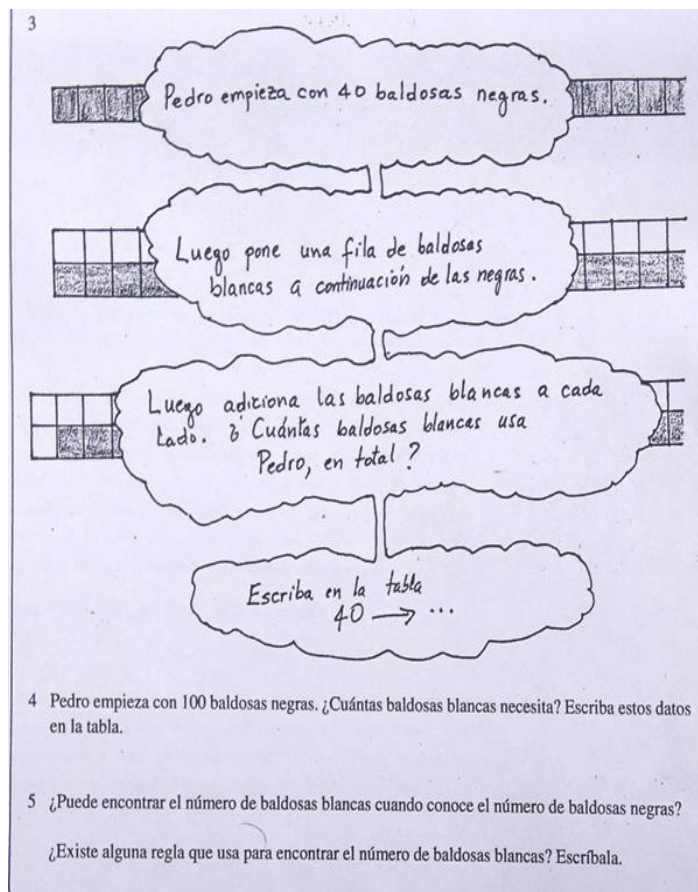 3
Pedro empieza con 40 baldosas negras.
Luego pone una fila de baldosas
blancas a continuación de las negras.
Luego adiciona las baldosas blancas a cada
lado. ¿Cuántas baldosas blancas usa
Pedro, en total?
Escriba en la tabla
40 → ...
4 Pedro empieza con 100 baldosas negras. ¿Cuántas baldosas blancas necesita? Escriba estos datos
en la tabla.
5 ¿Puede encontrar el número de baldosas blancas cuando conoce el número de baldosas negras?
¿Existe alguna regla que usa para encontrar el número de baldosas blancas? Escríbala.